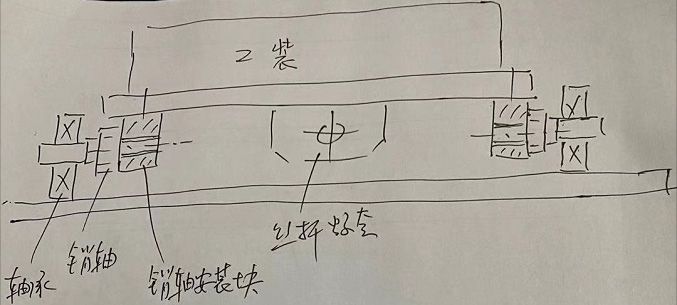 工装
丝杆螺套
销轴
轴承
销轴安装块